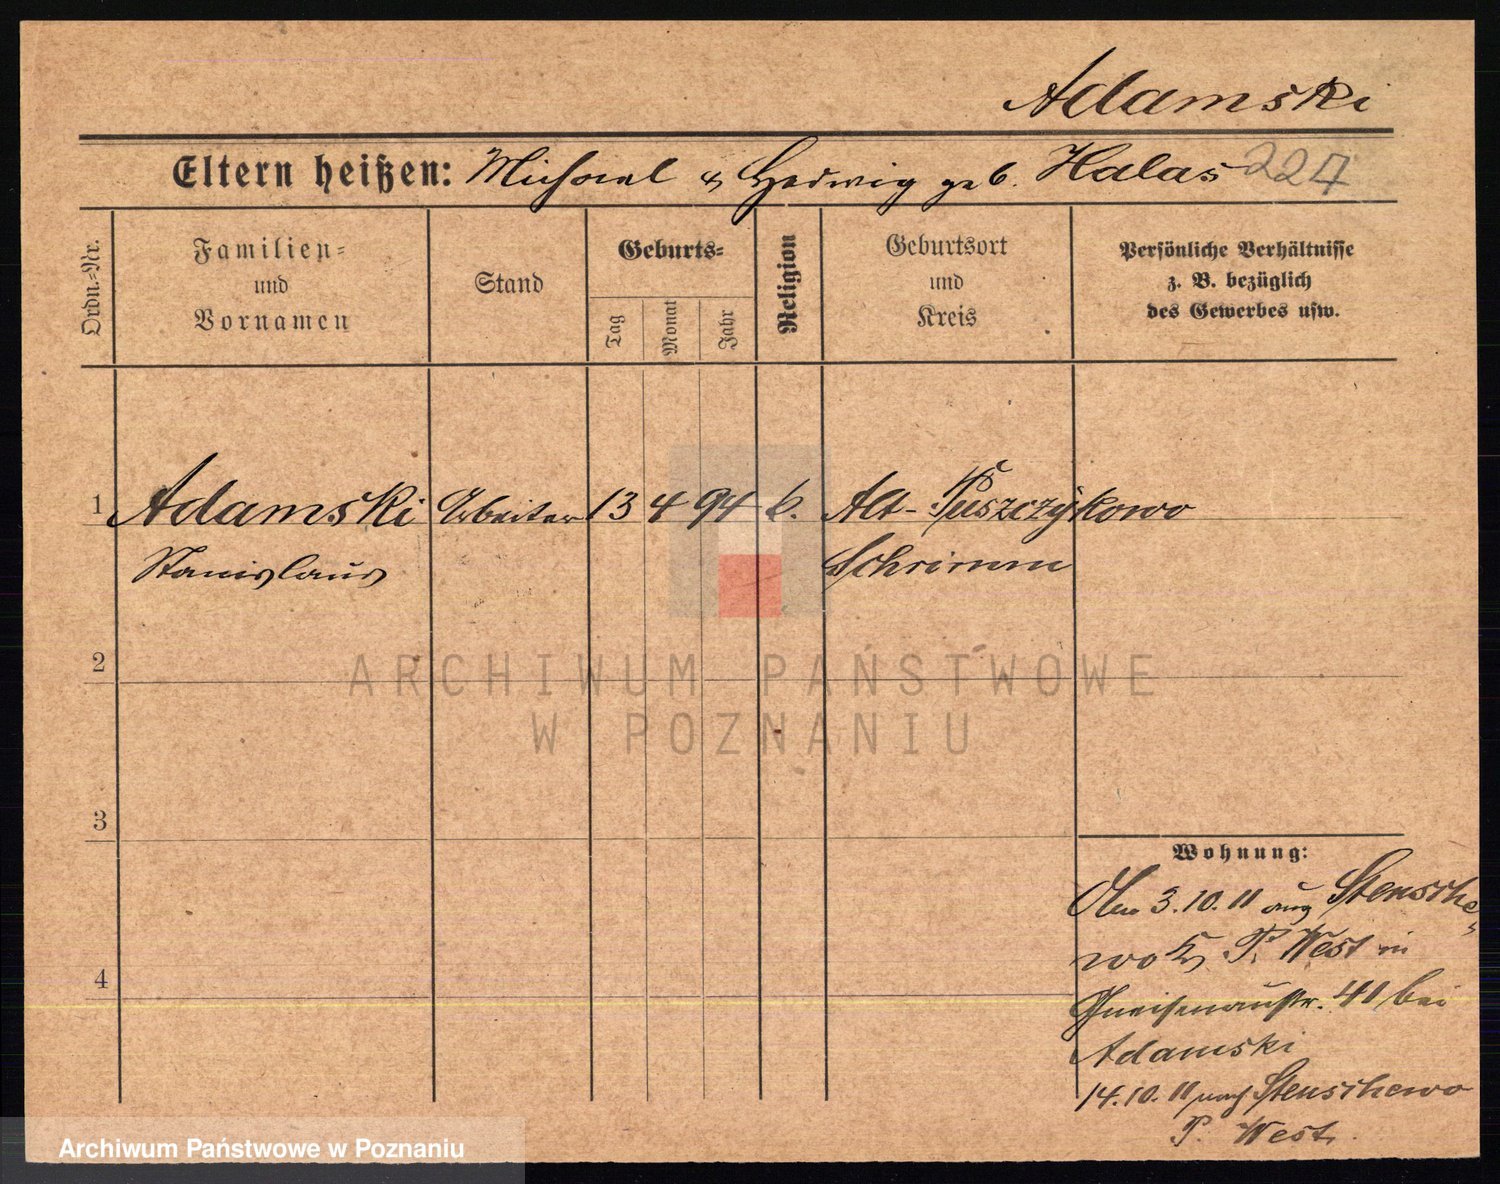 Adamski
Eltern heißen: Michael & Hedwig geb. Halas 227
Ordn.=Nr.
Familien=
und
Vornamen
Stand
Geburts=
Tag
Monat
Jahr
Religion
Geburtsort
und
Kreis
Persönliche Verhältnisse
z. B. bezüglich
des Gewerbes usw.
1 Adamski Arbeiter 13 4 94 k. Alt-Puszczykowo
Stanislaus Schrimm
2
ARCHIWUM PAŃSTWOWE
W POZNANIU
3
Wohnung:
Am 3.10.11 aus Stensche=
wo Kr. P. West in
Gneisenaustr. 40 bei
4
Adamski
14.10.11 nach Stenschewo
P. West.
Archiwum Państwowe w Poznaniu